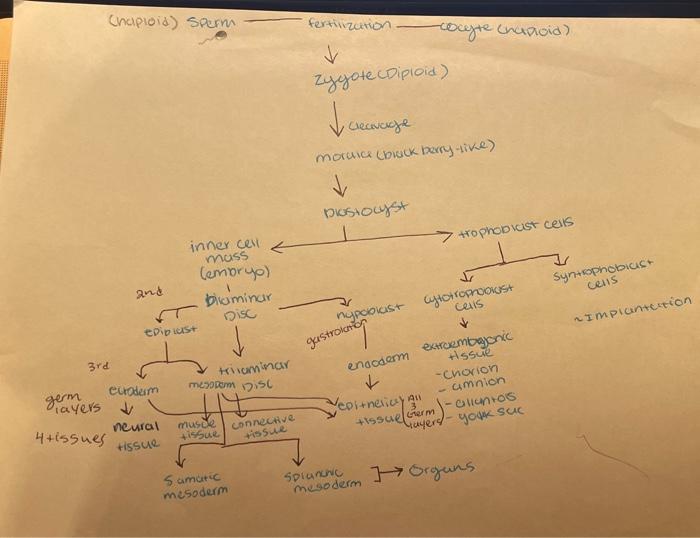 (haploid) sperm — fertilization — oocyte (haploid)
zygote (Diploid)
cleavage
morula (black berry-like)
blastocyst
inner cell
mass
(embryo)
trophoblast cells
2nd
bilaminar
Disc
epiblast
hypoblast
gastrolation
cytotrophoblast
cells
syntrophoblast
cells
~ Implantation
3rd
trilaminar
Disc
germ
layers
ectoderm
mesoderm
endoderm
extraembryonic
tissue
- chorion
- amnion
- allantois
- yolk sac
4 tissues
neural
tissue
muscle
tissue
connective
tissue
epithelial
tissue
(All
3
Germ
layers)
Somatic
mesoderm
Splanchnic
mesoderm
Organs